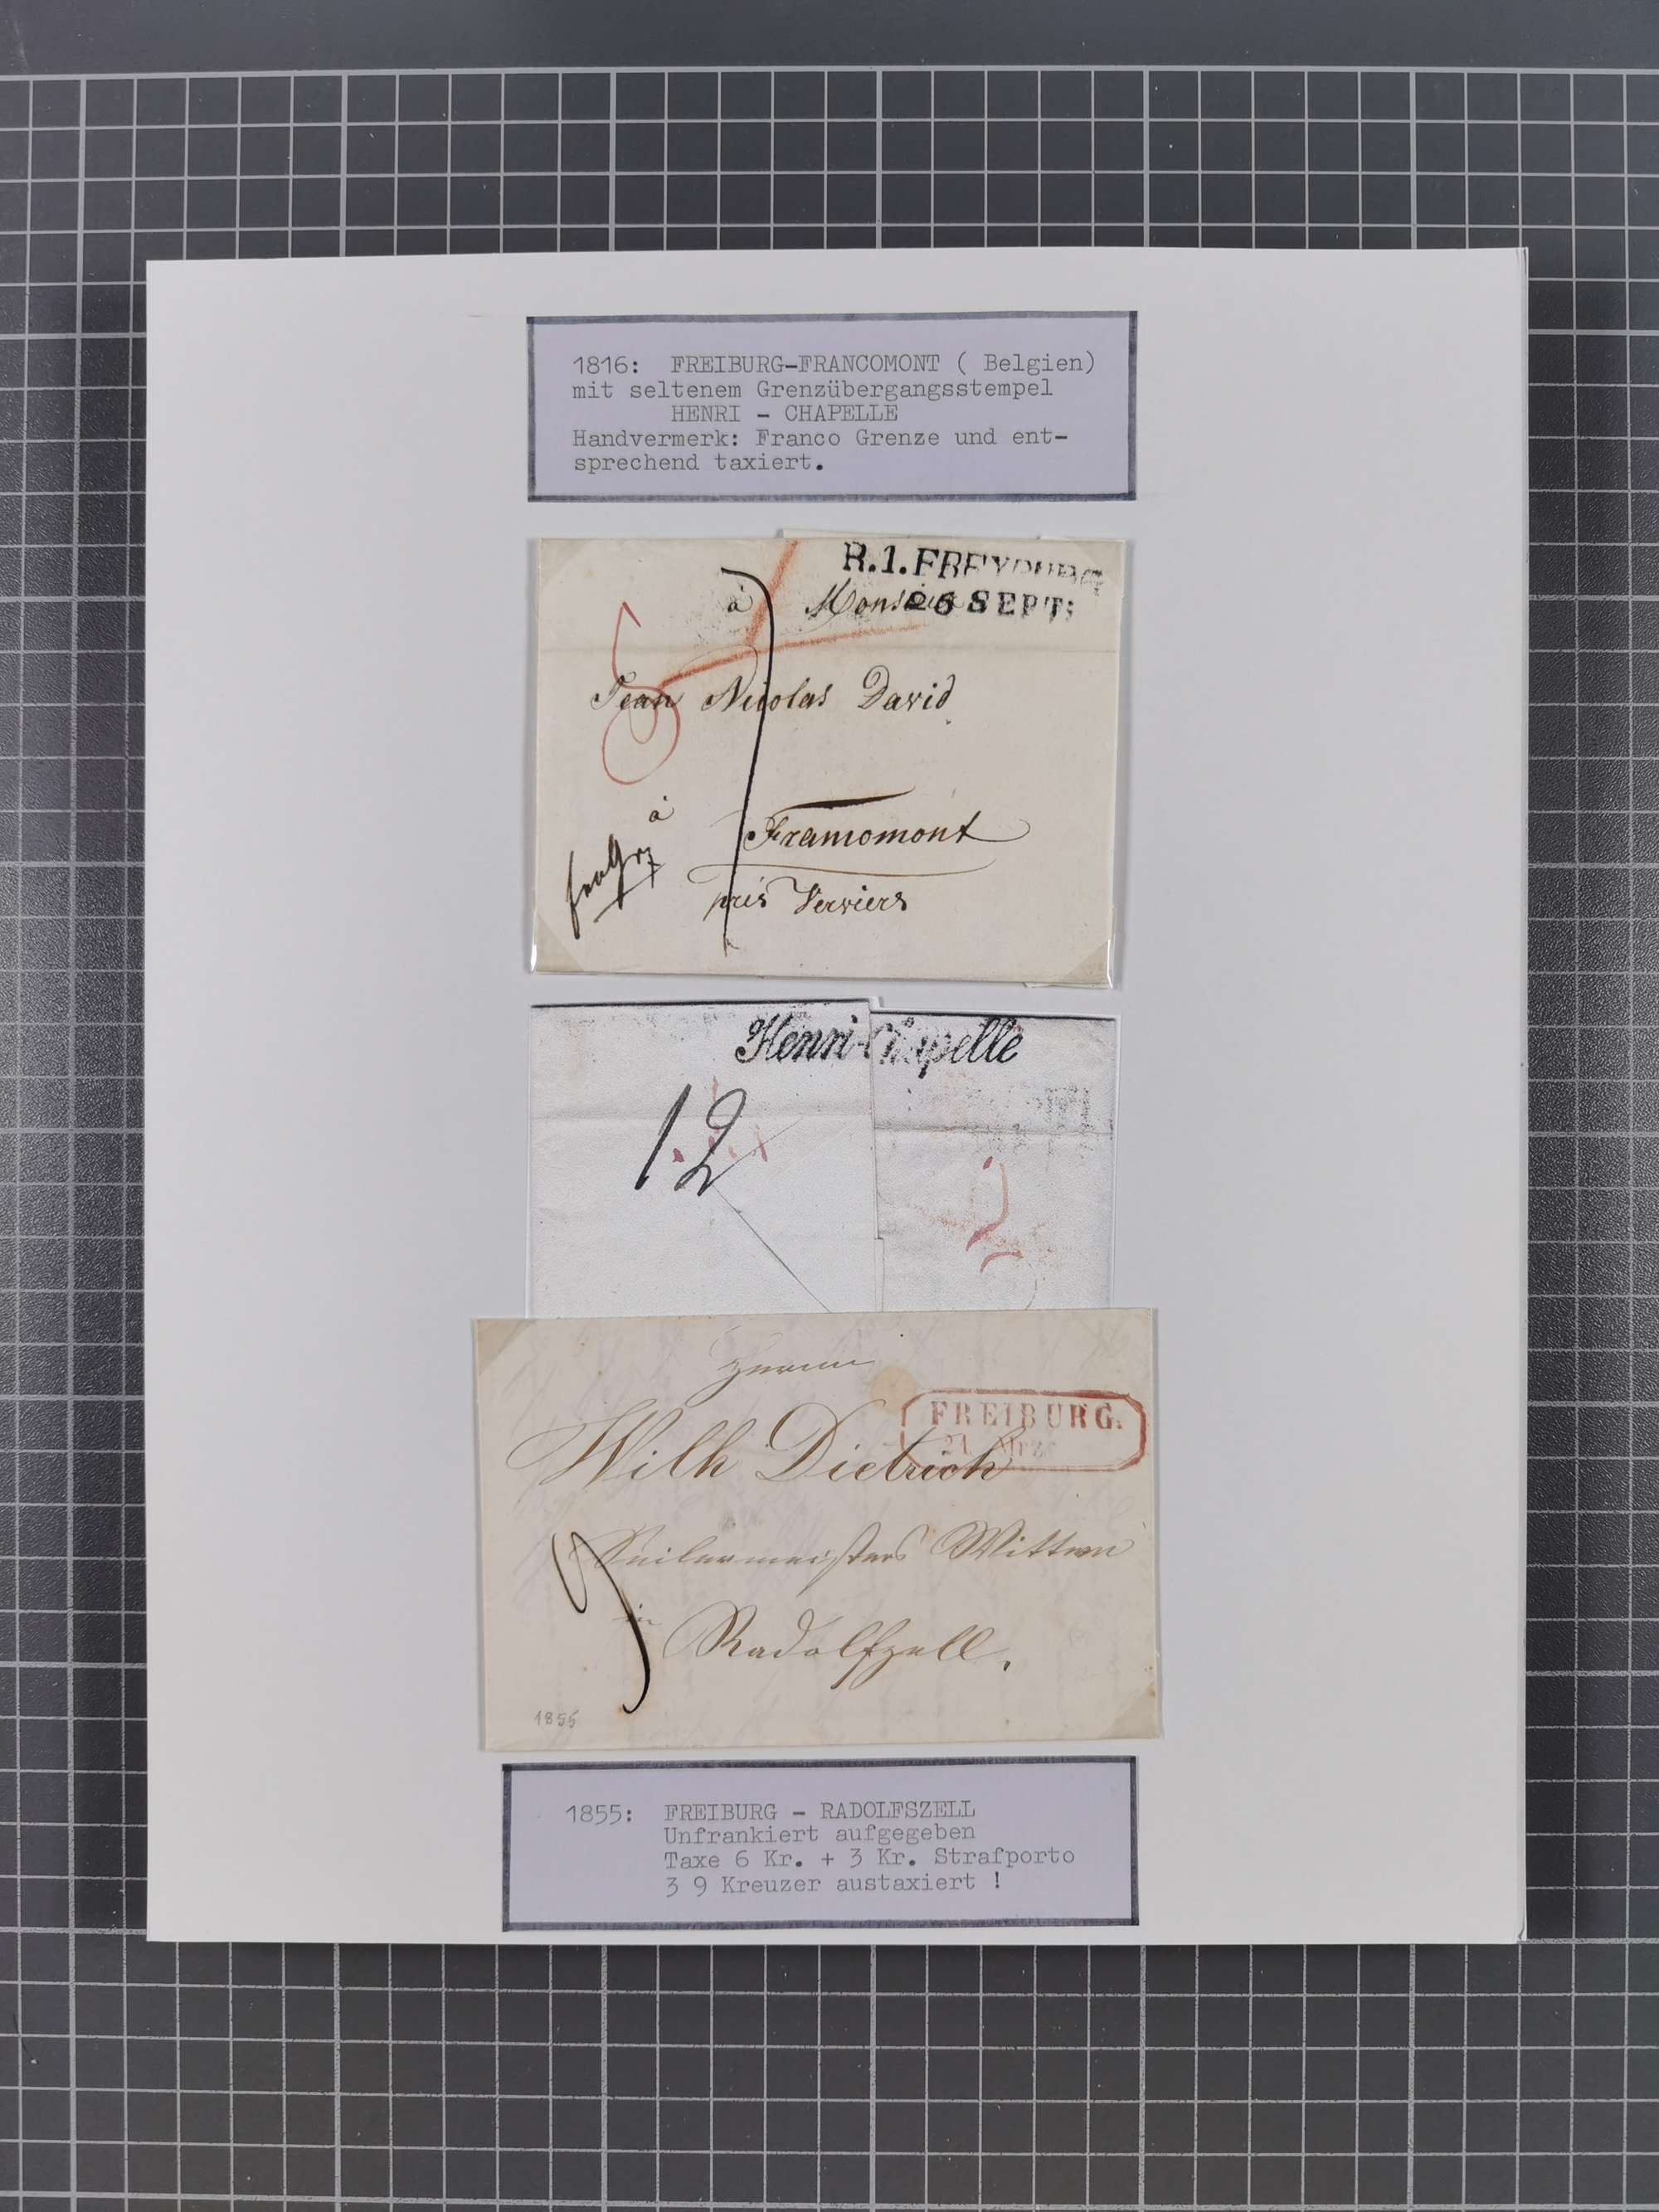 1816: FREIBURG-FRANCOMONT ( Belgien)
mit seltenem Grenzübergangsstempel
HENRI - CHAPELLE
Handvermerk: Franco Grenze und ent-
sprechend taxiert.
R.1.FREYBURG
26 SEPT:
à Monsieur
Jean Nicolas David
à
Francomont
près Verviers
Henri-Chapelle
12
Herrn
FREIBURG.
21 Mrz
Wilh Dietrich
Seilermeisters Wittwe
in
Radolfzell.
9
1855
1855: FREIBURG - RADOLFSZELL
Unfrankiert aufgegeben
Taxe 6 Kr. + 3 Kr. Strafporto
3 9 Kreuzer austaxiert !